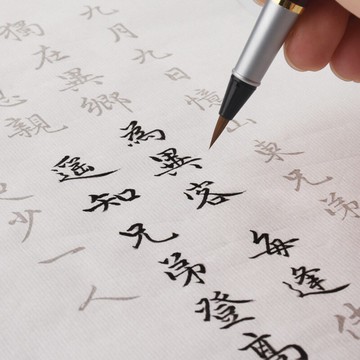 九月九日憶山東兄弟
獨在異鄉為異客每逢佳
思親遙知兄弟登高
少一人